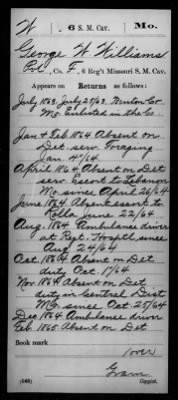 W 6 S. M. Cav. Mo.
George W Williams
Pvt, Co. F, 6 Reg't Missouri S. M. Cav.
Appears on Returns as follows:
July 1863 July 27/63 Newton Co
Mo Enlisted in the Co.
Jan & Feb 1864 Absent on
Det. serv. Foraging
Jan 4"/64
April 1864 Absent on Det
serv. Escort to Lebanon
Mo since April 26/64
June 1864 Absent escort to
Rolla June 22/64
Aug. 1864 Ambulance driver
at Regt. Hosptl. since
Aug 24/64
Oct 1864 Absent on Det
duty Oct 17/64
Nov 1864 Absent on Det
duty in Central Dist
Mo since Oct 25/64
Dec 1864 Ambulance driver
Feb 1865 Absent on Det
Book mark
(over)
(546) Copyist.